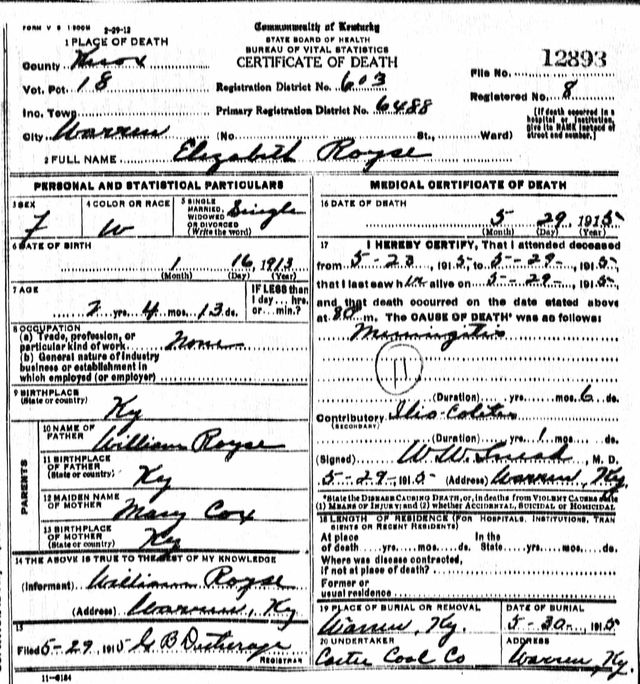 FORM V S 1 500M 2-29-12
Commonwealth of Kentucky
STATE BOARD OF HEALTH
BUREAU OF VITAL STATISTICS
CERTIFICATE OF DEATH
1 PLACE OF DEATH
County Knox
Vot. Pct. 18
Inc. Town
City Warren
Registration District No. 603
Primary Registration District No. 6488
(No. St., Ward)
File No. 12893
Registered No. 8
[If death occurred in a
hospital or institution,
give its NAME instead of
street and number.]
2 FULL NAME Elizabeth Royse
PERSONAL AND STATISTICAL PARTICULARS
3 SEX F
4 COLOR OR RACE W
5 SINGLE
MARRIED,
WIDOWED
OR DIVORCED
(Write the word) Single
6 DATE OF BIRTH
1 16, 1913
(Month) (Day) (Year)
7 AGE
2 yrs. 4 mos. 13 ds.
IF LESS than
1 day... hrs.
or... min.?
8 OCCUPATION
(a) Trade, profession, or
particular kind of work None
(b) General nature of industry
business or establishment in
which employed (or employer)
9 BIRTHPLACE
(State or country) Ky
PARENTS
10 NAME OF
FATHER William Royse
11 BIRTHPLACE
OF FATHER
(State or country) Ky
12 MAIDEN NAME
OF MOTHER Mary Cox
13 BIRTHPLACE
OF MOTHER
(State or country) Ky
14 THE ABOVE IS TRUE TO THE BEST OF MY KNOWLEDGE
(Informant) William Royse
(Address) Warren, Ky
15
Filed 5-29, 1915 B
REGISTRAR
11-6184
MEDICAL CERTIFICATE OF DEATH
16 DATE OF DEATH
5 29, 1915
(Month) (Day) (Year)
17 I HEREBY CERTIFY, That I attended deceased
from 5-23, 1915, to 5-29-, 1915
that I last saw h alive on 5-29-, 1915
and that death occurred on the date stated above
at 8 m. The CAUSE OF DEATH* was as follows:
Meningitis
11
(Duration) yrs. mos. 6 ds.
Contributory Ilio-Colitis
(SECONDARY)
(Duration) yrs. 1 mos. ds.
(Signed) W W , M. D.
5-29-1915 (Address) Warren, Ky.
*State the DISEASE CAUSING DEATH, or, in deaths from VIOLENT CAUSES state
(1) MEANS OF INJURY; and (2) whether ACCIDENTAL, SUICIDAL or HOMICIDAL
18 LENGTH OF RESIDENCE (FOR HOSPITALS, INSTITUTIONS, TRAN
SIENTS OR RECENT RESIDENTS)
At place In the
of death yrs. mos. ds. State yrs. mos. ds.
Where was disease contracted,
if not at place of death?
Former or
usual residence
19 PLACE OF BURIAL OR REMOVAL
Warren, Ky.
DATE OF BURIAL
5-30-, 1915
20 UNDERTAKER
Coal Co
ADDRESS
Warren, Ky.